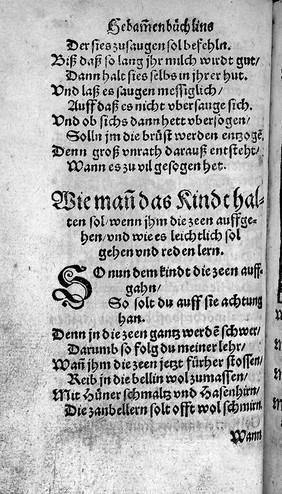 Hebam̃enbüchlins
Der sies zusaugen sol befehln.
Biß daß so lang jhr milch wirdt gut/
Dann halt sies selbs in jhrer hut.
Vnd laß es saugen messiglich/
Auff daß es nicht vbersauge sich.
Vnd ob sichs dann hett vbersogen/
Solln jm die brüst werden entzogẽ,
Denn groß vnrath darauß entsteht/
Wann es zu vil gesogen het.
Wie mañ das Kindt hal-
ten sol/ wenn jhm die zeen auffge-
hen/ vnd wie es leichtlich sol
gehen vnd reden lern.
SO nun dem kindt die zeen auff-
gahn/
So solt du auff sie achtung
han.
Denn jn die zeen gantz werdẽ schwer/
Darumb so folg du meiner lehr/
Wañ jhm die zeen jetzt fürher stossen/
Reib in die bellin wol zumassen/
Mit Hüner schmaltz vnd Hasenhirn/
Die zanbellern solt offt wol schmirn.
Wann